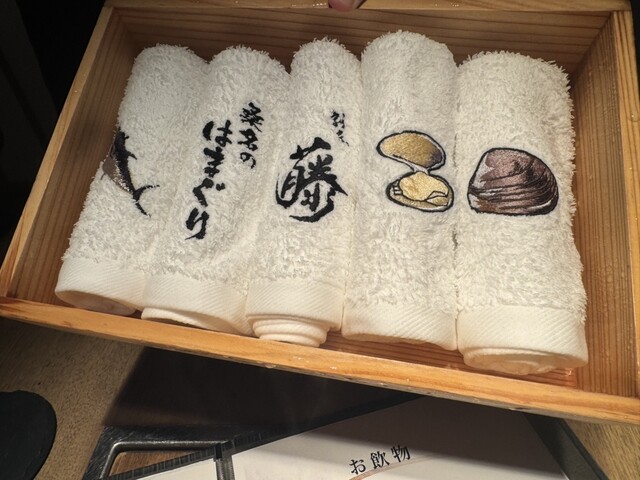 桑名の
はまぐり
藤
お飲物